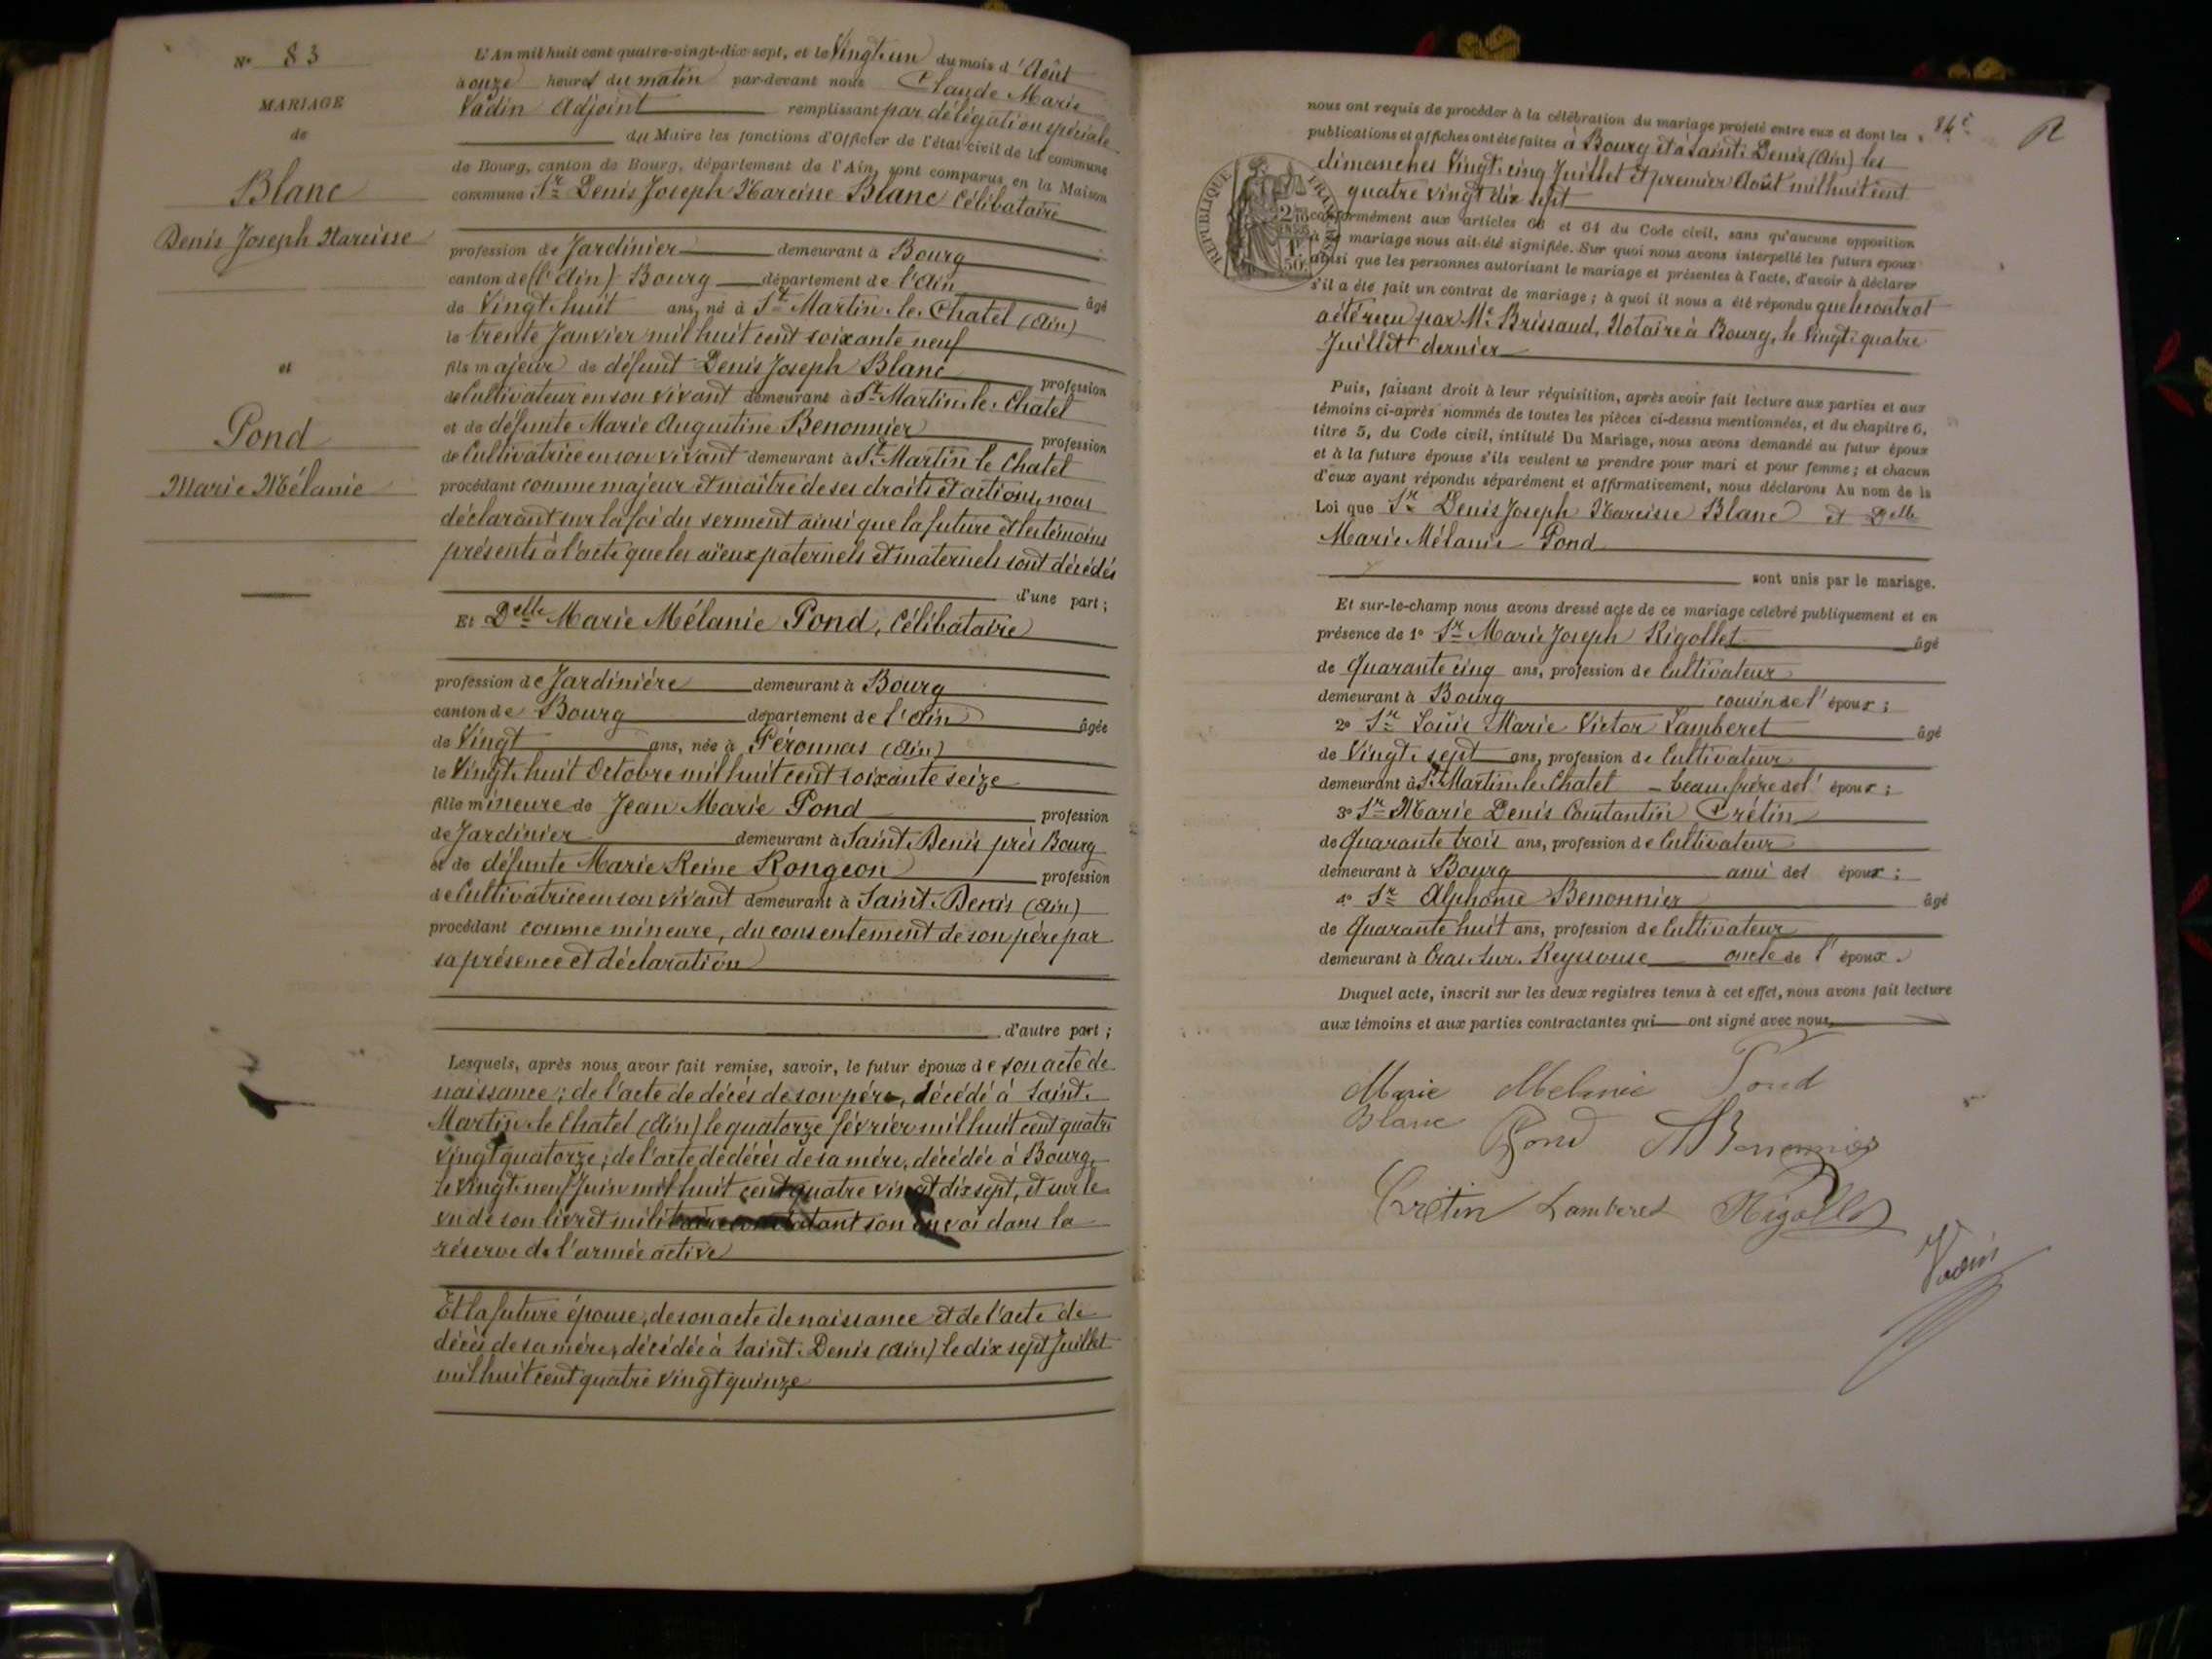 N° 83
MARIAGE
de
Blanc
Denis Joseph Narcisse
et
Pond
Marie Mélanie
L'An mil huit cent quatre-vingt-dix-sept, et le Vingt-un du mois d'Août
à onze heures du matin par-devant nous Claude Marie
Vadin Adjoint remplissant par délégation spéciale
du Maire les fonctions d'Officier de l'état civil de la commune
de Bourg, canton de Bourg, département de l'Ain, sont comparus en la Maison
commune Sr Denis Joseph Narcisse Blanc Célibataire
profession de Jardinier demeurant à Bourg
canton de (l'Ain) Bourg département de l'Ain
âgé
de Vingt-huit ans, né à St Martin-le-Chatel (Ain)
le trente Janvier mil huit cent soixante neuf
fils majeur de défunt Denis Joseph Blanc profession
de Cultivateur en son vivant demeurant à St Martin-le-Chatel
et de défunte Marie Augustine Benonnier profession
de Cultivatrice en son vivant demeurant à St Martin le Chatel
procédant comme majeur et maître de ses droits et actions, nous
déclarant sur la foi du serment ainsi que la future et les témoins
présents à l'acte que les aïeux paternels et maternels sont décédés
d'une part;
Et Delle Marie Mélanie Pond, Célibataire
profession de Jardinière demeurant à Bourg
canton de Bourg département de l'Ain âgée
de Vingt ans, née à Péronnas (Ain)
le Vingt-huit Octobre mil huit cent soixante seize
fille mineure de Jean Marie Pond profession
de Jardinier demeurant à Saint-Denis près Bourg
et de défunte Marie Reine Rongeon profession
de Cultivatrice en son vivant demeurant à Saint-Denis (Ain)
procédant comme mineure, du consentement de son père par
sa présence et déclaration
d'autre part;
Lesquels, après nous avoir fait remise, savoir, le futur époux de son acte de
naissance; de l'acte de décès de son père, décédé à Saint-
Martin-le-Chatel (Ain) le quatorze février mil huit cent quatre
vingt quatorze; de l'acte de décès de sa mère, décédée à Bourg,
le vingt-neuf Juin mil huit cent quatre vingt dix sept, et sur le
vu de son livret militaire constatant son envoi dans la
réserve de l'armée active
Et la future épouse, de son acte de naissance et de l'acte de
décès de sa mère, décédée à Saint-Denis (Ain) le dix sept Juillet
mil huit cent quatre vingt quinze
84e
nous ont requis de procéder à la célébration du mariage projeté entre eux et dont les
publications et affiches ont été faites à Bourg et à Saint-Denis (Ain) les
dimanches Vingt-cinq Juillet et premier Août mil huit cent
quatre vingt dix sept
RÉPUBLIQUE FRANÇAISE
conformément aux articles 63 et 64 du Code civil, sans qu'aucune opposition
à ce mariage nous ait été signifiée. Sur quoi nous avons interpellé les futurs époux
ainsi que les personnes autorisant le mariage et présentes à l'acte, d'avoir à déclarer
s'il a été fait un contrat de mariage; à quoi il nous a été répondu que le contrat
a été reçu par Me Brissaud, Notaire à Bourg, le Vingt-quatre
Juillet dernier
Puis, faisant droit à leur réquisition, après avoir fait lecture aux parties et aux
témoins ci-après nommés de toutes les pièces ci-dessus mentionnées, et du chapitre 6,
titre 5, du Code civil, intitulé Du Mariage, nous avons demandé au futur époux
et à la future épouse s'ils veulent se prendre pour mari et pour femme; et chacun
d'eux ayant répondu séparément et affirmativement, nous déclarons Au nom de la
Loi que Sr Denis Joseph Narcisse Blanc et Delle
Marie Mélanie Pond
sont unis par le mariage.
Et sur-le-champ nous avons dressé acte de ce mariage célébré publiquement et en
présence de 1° Sr Marie Joseph Rigollet âgé
de Quarante cinq ans, profession de Cultivateur
demeurant à Bourg cousin de l'époux;
2° Sr Louis Marie Victor Lamberet âgé
de Vingt-sept ans, profession de Cultivateur
demeurant à St Martin-le-Chatel beau-frère de l'époux;
3° Sr Marie Denis Constantin Crétin
de Quarante trois ans, profession de Cultivateur
demeurant à Bourg ami des époux;
4° Sr Alphonse Benonnier âgé
de Quarante huit ans, profession de Cultivateur
demeurant à Cras-sur-Reyssouse oncle de l'époux.
Duquel acte, inscrit sur les deux registres tenus à cet effet, nous avons fait lecture
aux témoins et aux parties contractantes qui ont signé avec nous,
Marie Melanie Pond
Blanc Pond A Benonnier
Cretin Lamberet Rigollet
Vadin